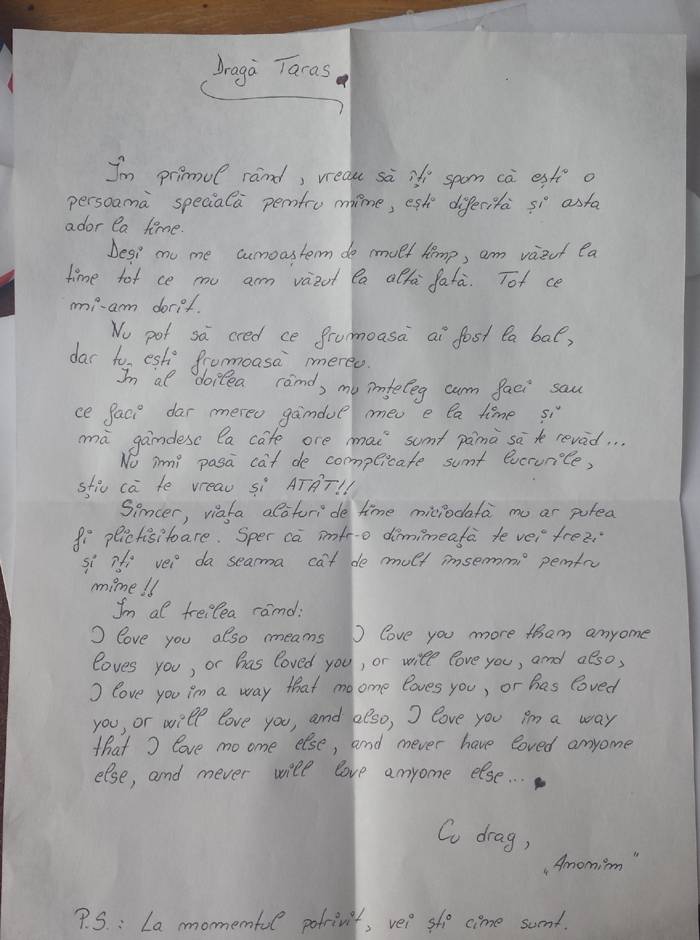 Dragă Taras
În primul rând, vreau să îți spun că ești o
persoană specială pentru mine, ești diferită și asta
ador la tine.
Deși nu ne cunoaștem de mult timp, am văzut la
tine tot ce nu am văzut la altă fată. Tot ce
mi-am dorit.
Nu pot să cred ce frumoasă ai fost la bal,
dar tu ești frumoasă mereu.
În al doilea rând, nu înțeleg cum faci sau
ce faci dar mereu gândul meu e la tine și
mă gândesc la câte ore mai sunt până să te revăd...
Nu îmi pasă cât de complicate sunt lucrurile,
știu că te vreau și ATÂT!!
Sincer, viața alături de tine niciodată nu ar putea
fi plictisitoare. Sper că într-o dimineață te vei trezi
și îți vei da seama cât de mult însemni pentru
mine!!
În al treilea rând:
I love you also means I love you more than anyone
loves you, or has loved you, or will love you, and also,
I love you in a way that no one loves you, or has loved
you, or will love you, and also, I love you in a way
that I love no one else, and never have loved anyone
else, and never will love anyone else...
Cu drag,
„Anonim"
P.S.: La momentul potrivit, vei ști cine sunt.